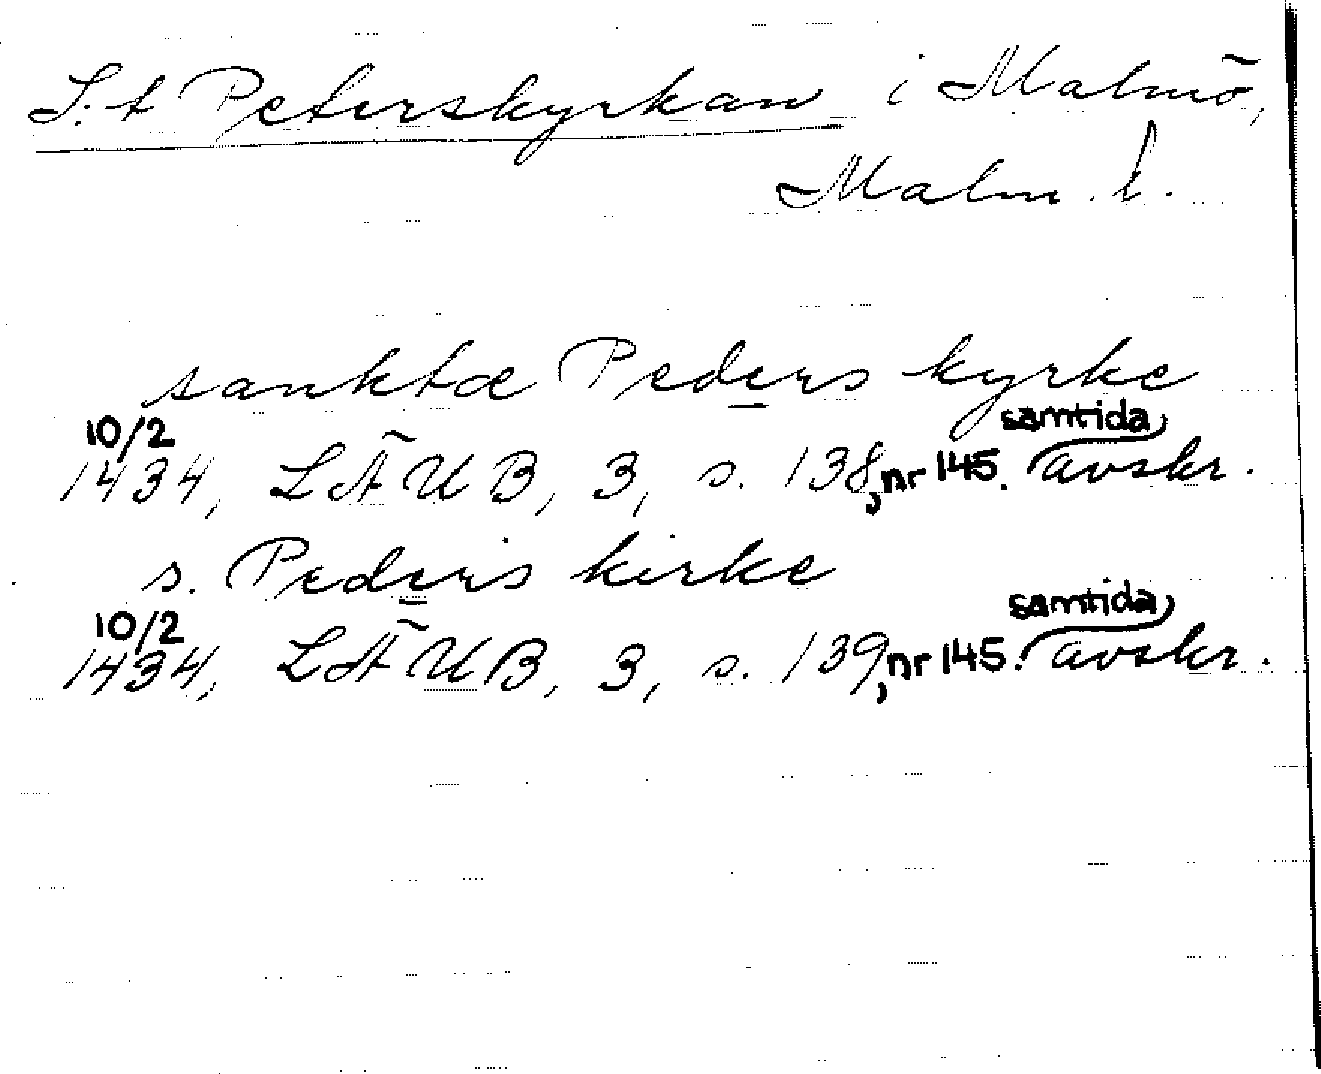 S:t Peterskyrkan i Malmö,
Malm. l.
sanktæ Peders kyrke
10/2 samtida
1434, LÄUB, 3, s. 138, nr 145. avskr.
s. Peders kirke
10/2 samtida
1434, LÄUB, 3, s. 139, nr 145. avskr.